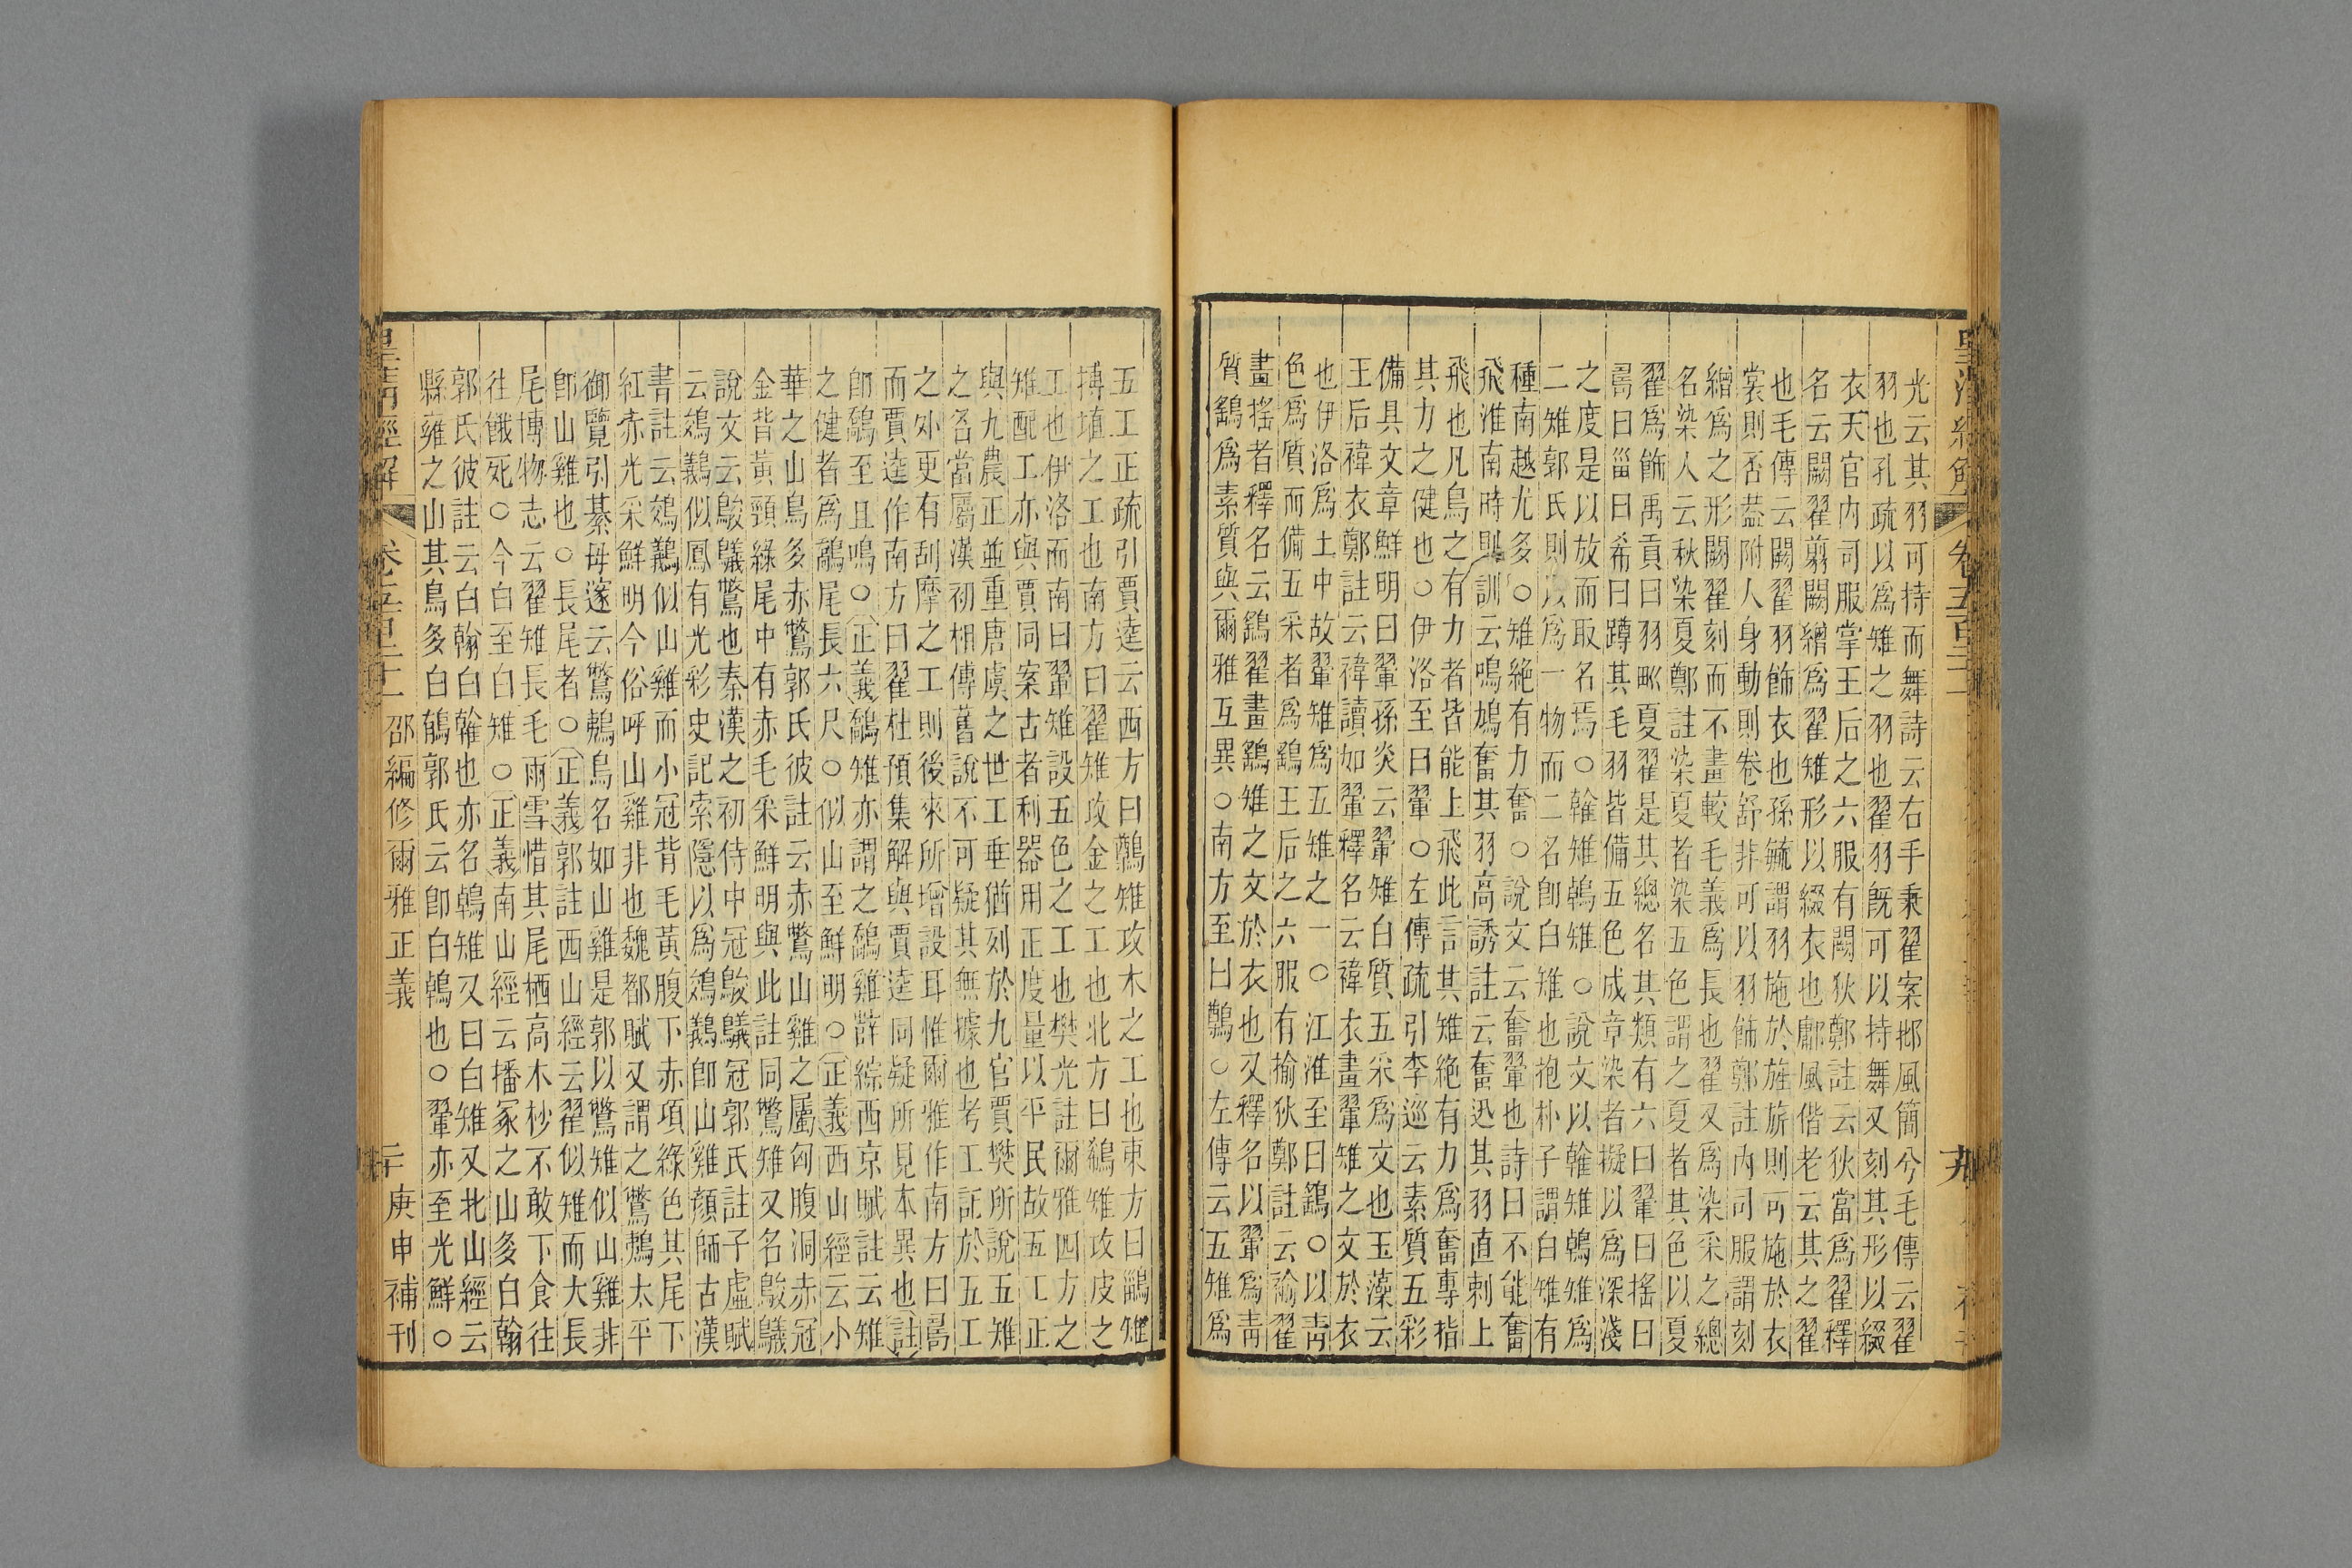 光云其羽可持而舞詩云右手秉翟案邶風簡兮毛傳云翟
羽也孔疏以爲雉之羽也翟羽旣可以持舞又刻其形以綴
衣天官內司服掌王后之六服有闕狄鄭註云狄當爲翟釋
名云闕翟翦闕繒爲翟雉形以綴衣也鄘風偕老云其之翟
也毛傳云闕翟羽飾衣也孫毓謂羽施於旌旂則可施於衣
裳則否葢附人身動則卷舒非可以羽飾鄭註內司服謂刻
繒爲之形闕翟刻而不畫較毛義爲長也翟又爲染采之總
名染人云秋染夏鄭註染夏者染五色謂之夏者其色以夏
翟爲飾禹貢曰羽畎夏翟是其總名其類有六曰翬曰搖曰
𠷎曰甾曰希曰蹲其毛羽皆備五色成章染者擬以爲深淺
之度是以放而取名焉○雗雉鶾雉○說文以雗雉鶾雉爲
二雉郭氏則以爲一物而二名卽白雉也抱朴子謂白雉有
種南越尤多○雉絕有力奮○說文云奮翬也詩曰不能奮
飛淮南時則訓云鳴鳩奮其羽高誘註云奮迅其羽直刺上
飛也凡鳥之有力者皆能上飛此言其雉絕有力爲奮專指
其力之健也○伊洛至曰翬○左傳疏引李巡云素質五彩
備具文章鮮明曰翬孫炎云翬雉白質五采爲文也玉藻云
王后褘衣鄭註云褘讀如翬釋名云褘衣畫翬雉之文於衣
也伊洛爲土中故翬雉爲五雉之一○江淮至曰鷂○以靑
色爲質而備五采者爲鷂王后之六服有揄狄鄭註云揄翟
畫搖者釋名云鷂翟畫鷂雉之文於衣也又釋名以翬爲靑
質鷂爲素質與爾雅互異○南方至曰𪇬○左傳云五雉爲
五工正疏引賈逵云西方曰鷷雉攻木之工也東方曰鶅雉
搏埴之工也南方曰翟雉攻金之工也北方曰鵗雉攻皮之
工也伊洛而南曰翬雉設五色之工也樊光註爾雅四方之
雉配工亦與賈同案古者利器用正度量以平民故五工正
與九農正並重唐虞之世工垂猶列於九官賈樊所說五雉
之名當屬漢初相傳舊說不可疑其無據也考工記於五工
之外更有刮摩之工則後來所增設耳惟爾雅作南方曰𠷎
而賈逵作南方曰翟杜預集解與賈逵同疑所見本異也註
卽鷂至且鳴○正義鷂雉亦謂之鷂雞薛綜西京賦註云雉
之健者爲鷮尾長六尺○似山至鮮明○正義西山經云小
華之山鳥多赤鷩郭氏彼註云赤鷩山雞之屬匈腹洞赤冠
金背黃頸綠尾中有赤毛采鮮明與此註同鷩雉又名鵔鸃
說文云鵔鸃鷩也秦漢之初侍中冠鵔鸃冠郭氏註子虛賦
云鵕䴊似鳳有光彩史記索隱以爲鵕䴊卽山雞顏師古漢
書註云鵕䴊似山雞而小冠背毛黃腹下赤項綠色其尾下
紅赤光采鮮明今俗呼山雞非也魏都賦又謂之鷩鷞太平
御覽引綦毋邃云鷩鷞鳥名如山雞是郭以鷩雉似山雞非
卽山雞也○長尾者○正義郭註西山經云翟似雉而大長
尾博物志云翟雉長毛雨雪惜其尾栖高木杪不敢下食往
往餓死○今白至白雉○正義南山經云播冢之山多白翰
郭氏彼註云白翰白雗也亦名鶾雉又曰白雉又北山經云
縣雍之山其鳥多白鵫郭氏云卽白鶾也○翬亦至光鮮○
皇淸經解 卷五百二十二 邵編修爾雅正義 二十 庚申補刊